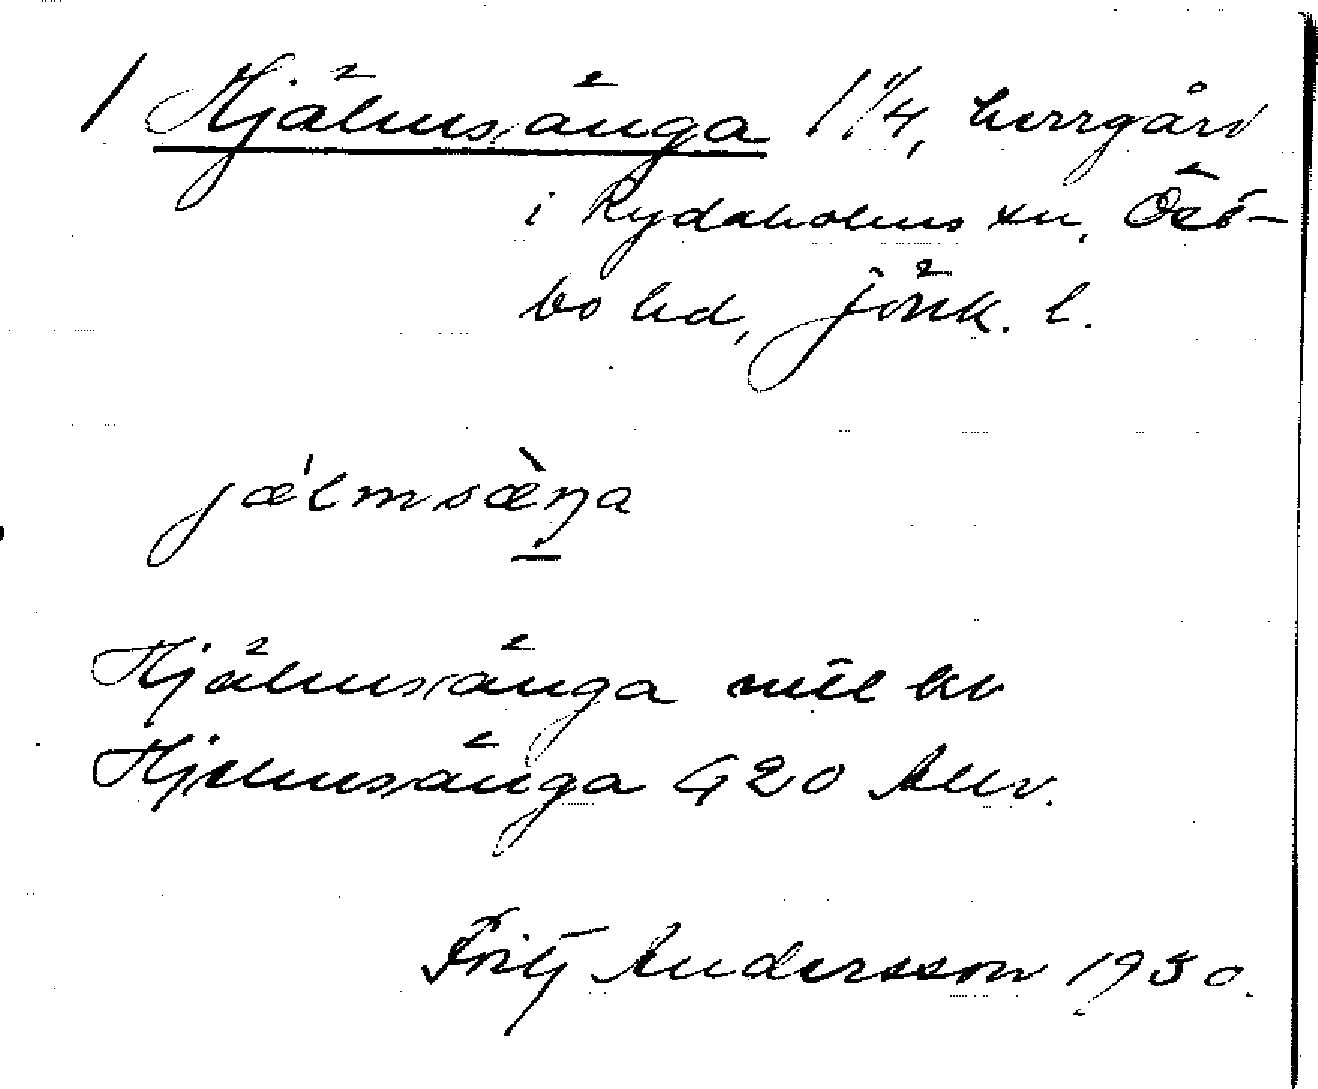 1 Hjälmsänga 1 1/4, herrgård
i Rydaholms sn, Öst-
bo hd, Jönk. l.
jæ'lmsæ̀ŋa
Hjälmsänga mtl kv
Hjelmsänga G20 Allv.
Fritj Andersson 1930.